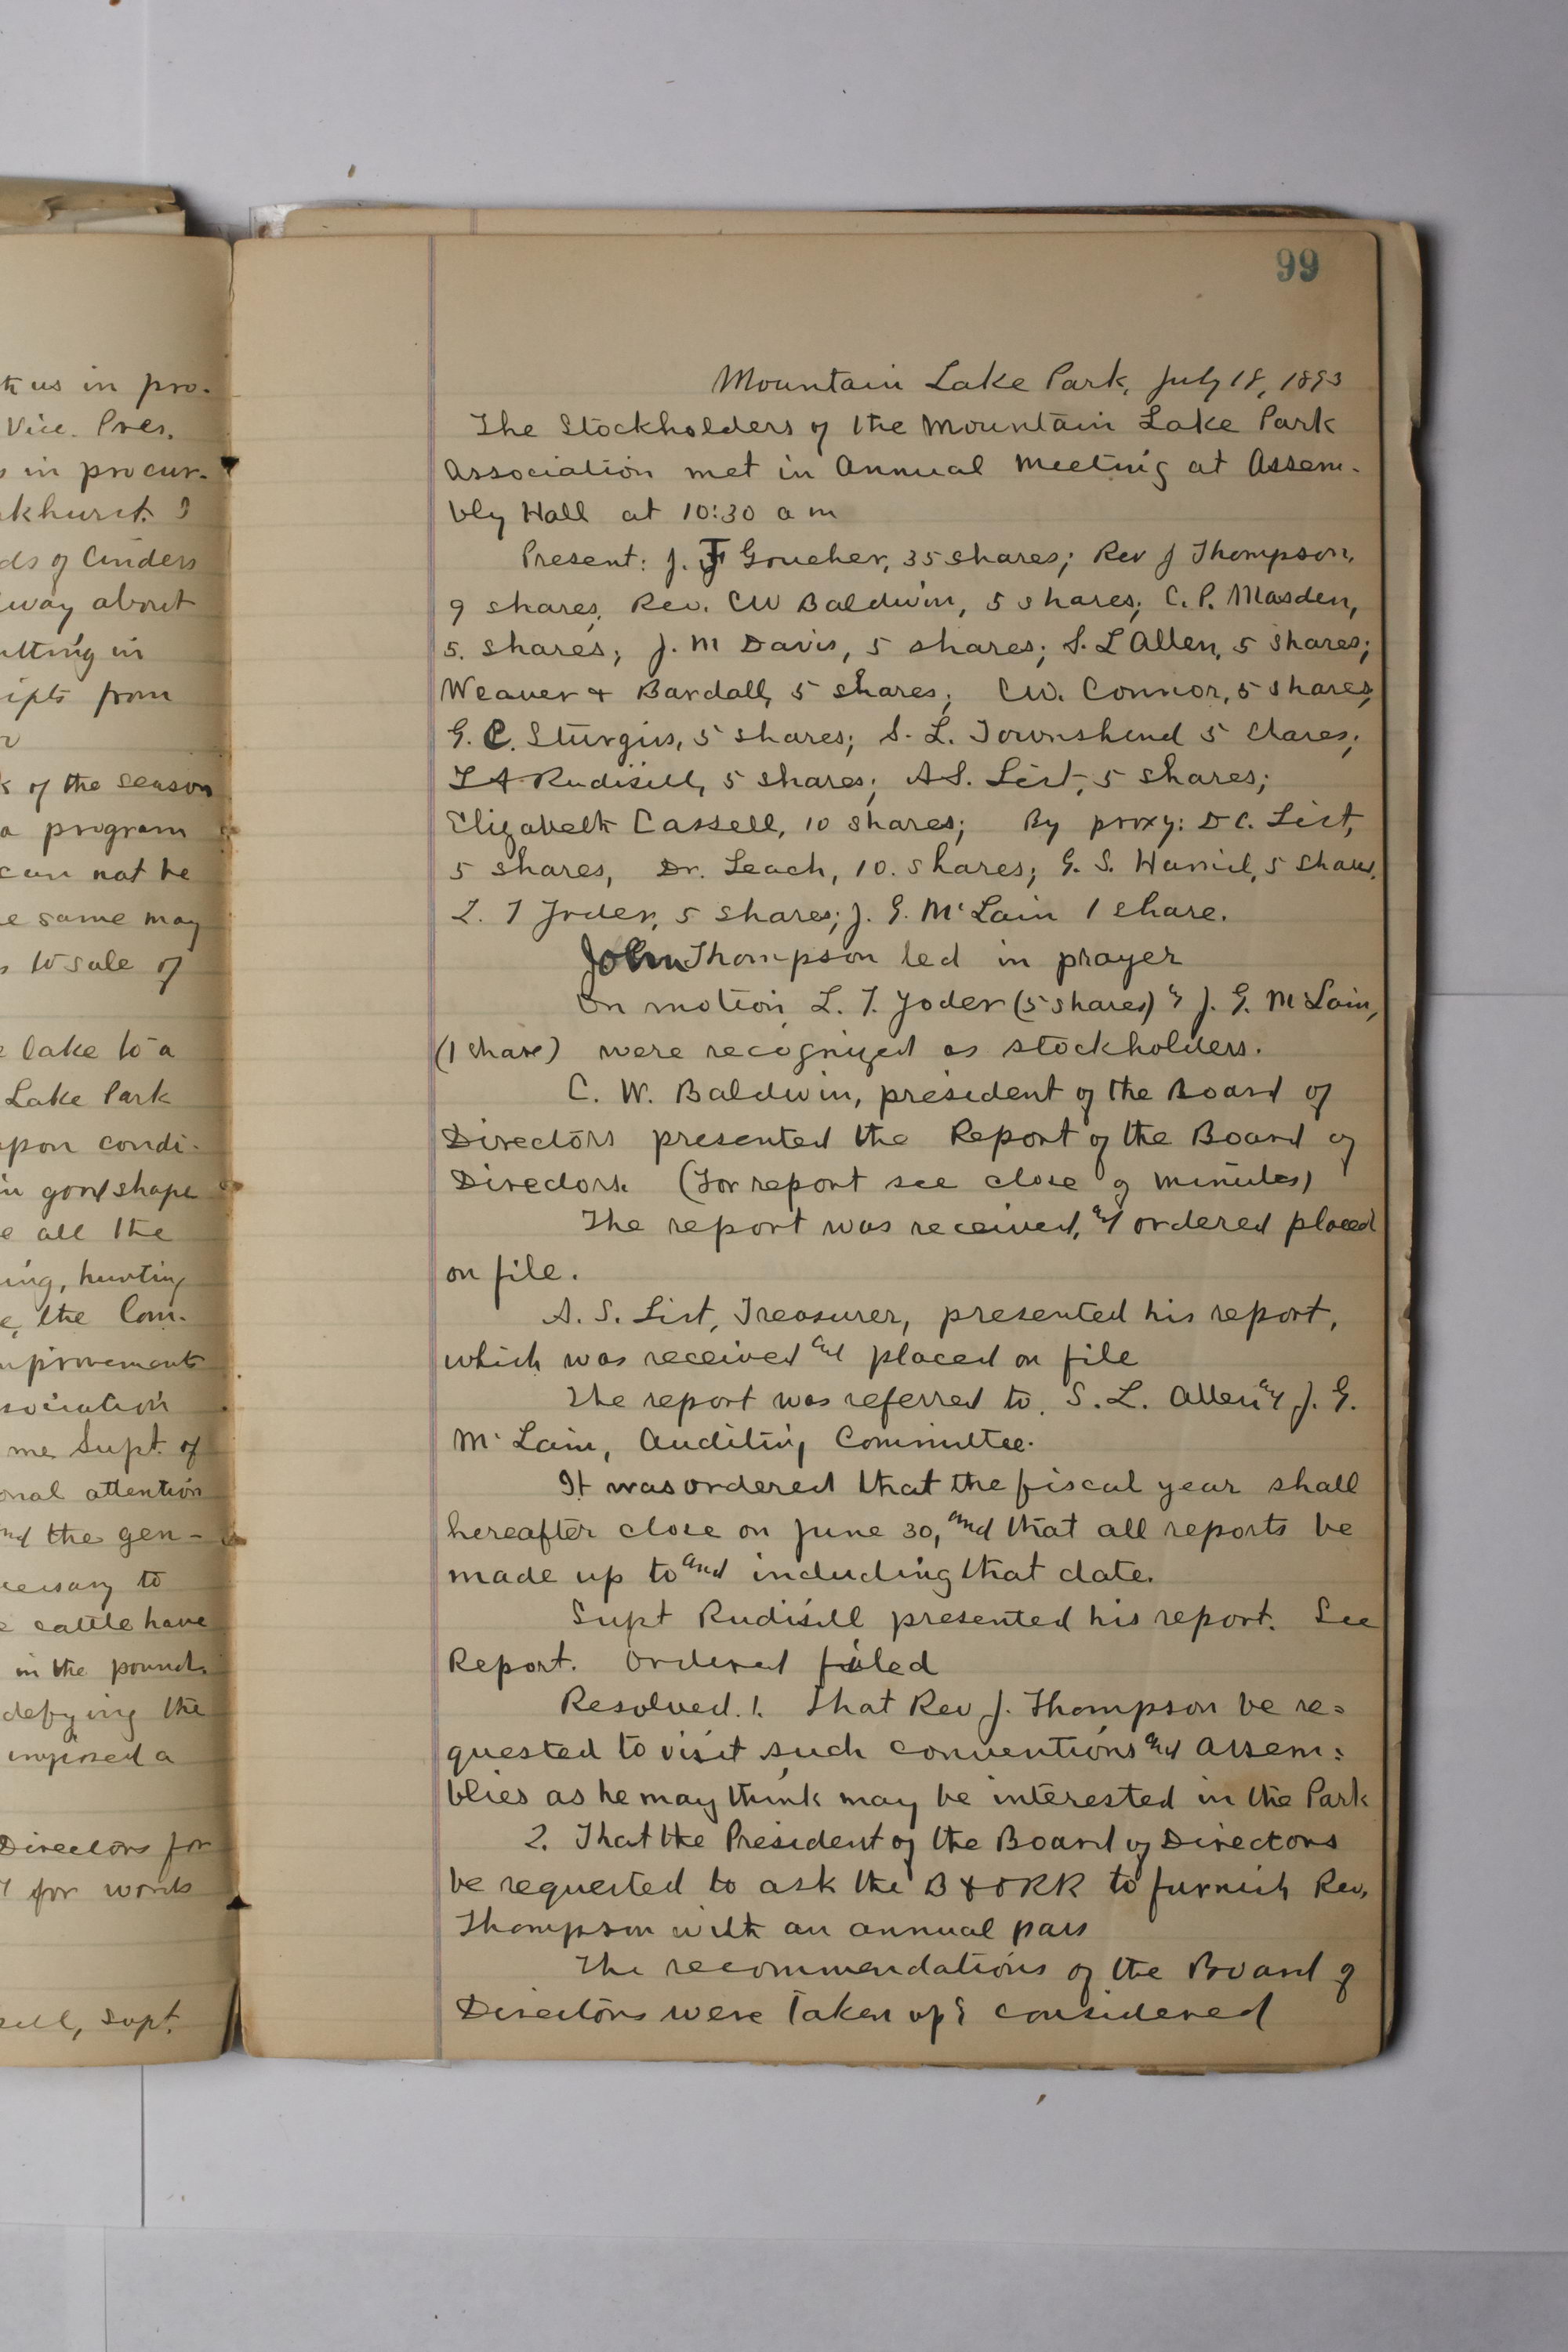 k us in pro-
Vice. Pres.
s in procur-
khurst. I
ds of Cinders
way about
utting in
ipts from
k of the season
a program
can not be
e same may
s to sale of
e lake to a
Lake Park
upon condi-
in good shape
e all the
ing, hunting
e, the Com-
improvements
sociation
me Supt. of
onal attention
and the gen-
cessary to
e cattle have
in the pound.
defying the
imposed a
Directors for
for work
sill, Supt.
99
Mountain Lake Park, July 18, 1893
The Stockholders of the Mountain Lake Park
Association met in Annual Meeting at Assem-
bly Hall at 10:30 a m
Present: J. F Goucher, 35 shares; Rev J Thompson,
9 shares; Rev. CW Baldwin, 5 shares; C. P. Masden,
5. shares; J. M Davis, 5 shares; S. L Allen, 5 shares;
Weaver & Bardall, 5 shares; CW. Connor, 5 shares;
G. C. Sturgis, 5 shares; S. L. Townshend 5 shares;
L A Rudisill, 5 shares; A S. List, 5 shares;
Elizabeth Cassell, 10 shares; By proxy: D C. List,
5 shares, Dr. Leach, 10. shares; G. S. Hamil, 5 shares.
L. T Yoder, 5 shares; J. G. McLain 1 share.
John Thompson led in prayer
On motion L. T. Yoder (5 shares) & J. G. McLain,
(1 share) were recognized as stockholders.
C. W. Baldwin, president of the Board of
Directors presented the Report of the Board of
Directors. (For report see close of minutes)
The report was received, and ordered placed
on file.
A. S. List, Treasurer, presented his report,
which was received and placed on file
The report was referred to S. L. Allen and J. G.
McLain, Auditing Committee.
It was ordered that the fiscal year shall
hereafter close on June 30, and that all reports be
made up to and including that date.
Supt Rudisill presented his report. See
Report. Ordered filed
Resolved. 1. That Rev J. Thompson be re=
quested to visit such conventions and assem=
blies as he may think may be interested in the Park
2. That the President of the Board of Directors
be requested to ask the B & O RR to furnish Rev.
Thompson with an annual pass
The recommendations of the Board of
Directors were taken up & considered